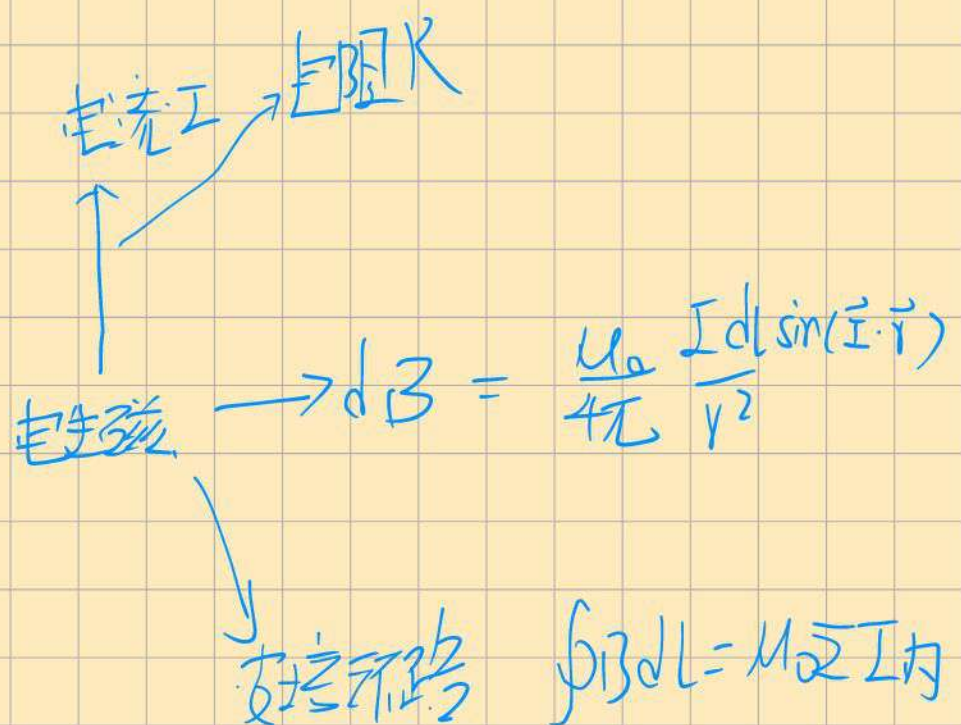 电流I
电阻R
电生磁 → dB = μ₀/4π Idl sin(I⃗·r⃗)/r²
安培环路 ∮Bdl=μ₀ΣI内